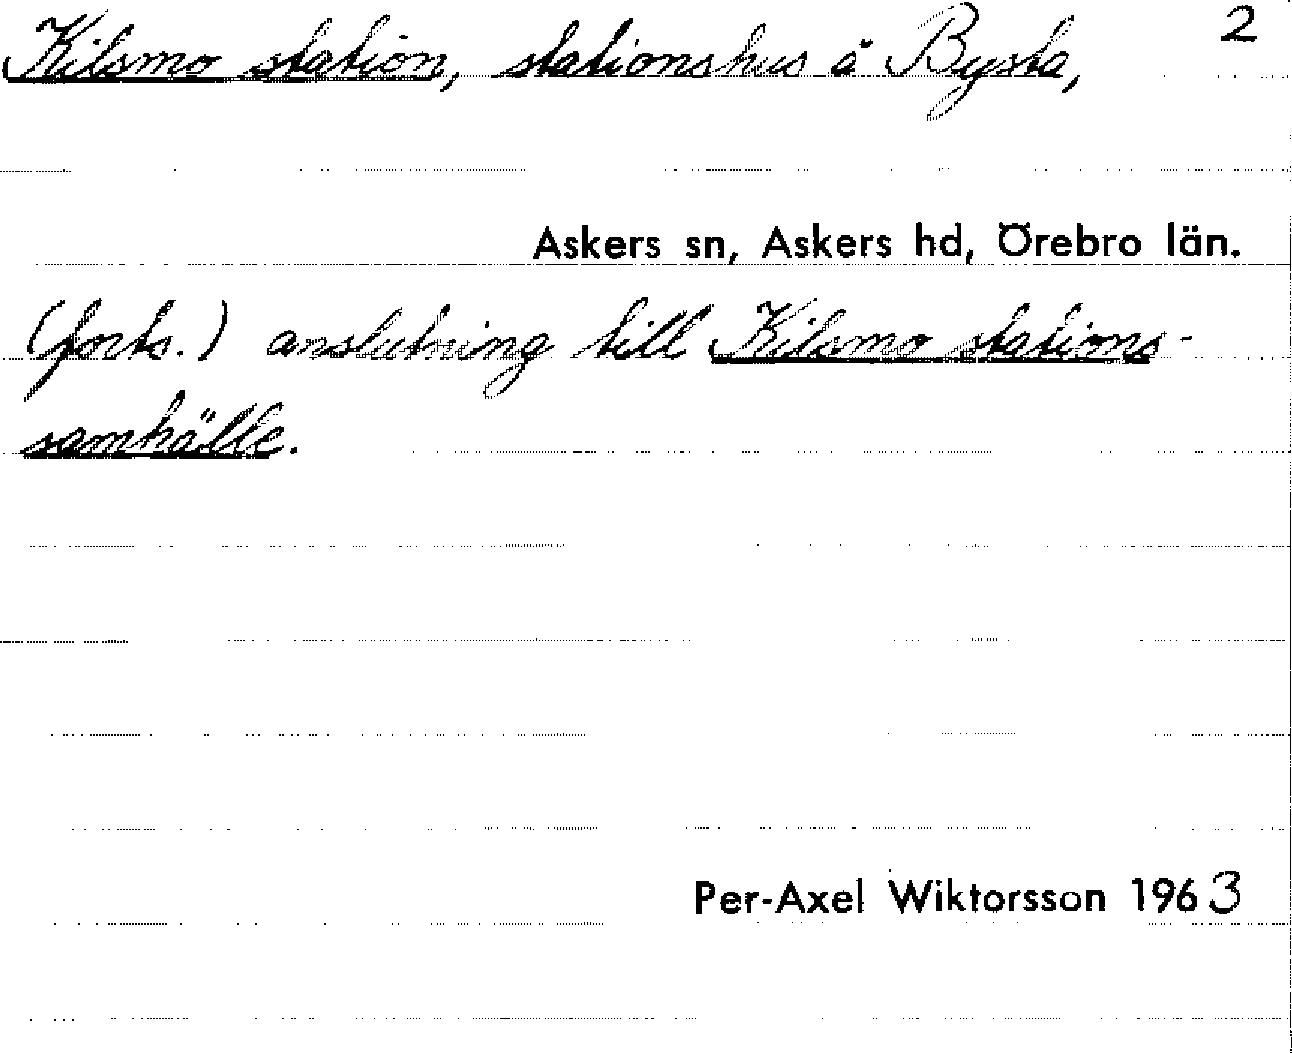 Kilsmo station, stationshus å Bysta, 2
Askers sn, Askers hd, Örebro län.
(forts.) anslutning till Kilsmo stations-
samhälle.
Per-Axel Wiktorsson 1963